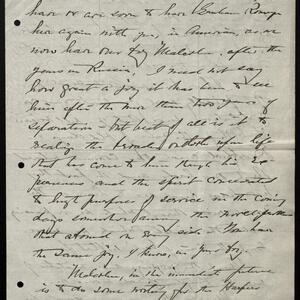 have or are soon to have Graham Romeyn
here again with you, in America, as we
now have our boy Malcolm, after the
years in Russia, I need not say
how great a joy it has been to see
him after the more than two years of
separation - but best of all is it to
realize the broader outlook upon life
that has come to him through his ex-
periences and the spirit consecrated
to high purposes of service in the coming
days somewhere among the
that abound on every side. You have
the same joy, I know, in your boy.
Malcolm, in the immediate future
is to do some writing for the Harpers